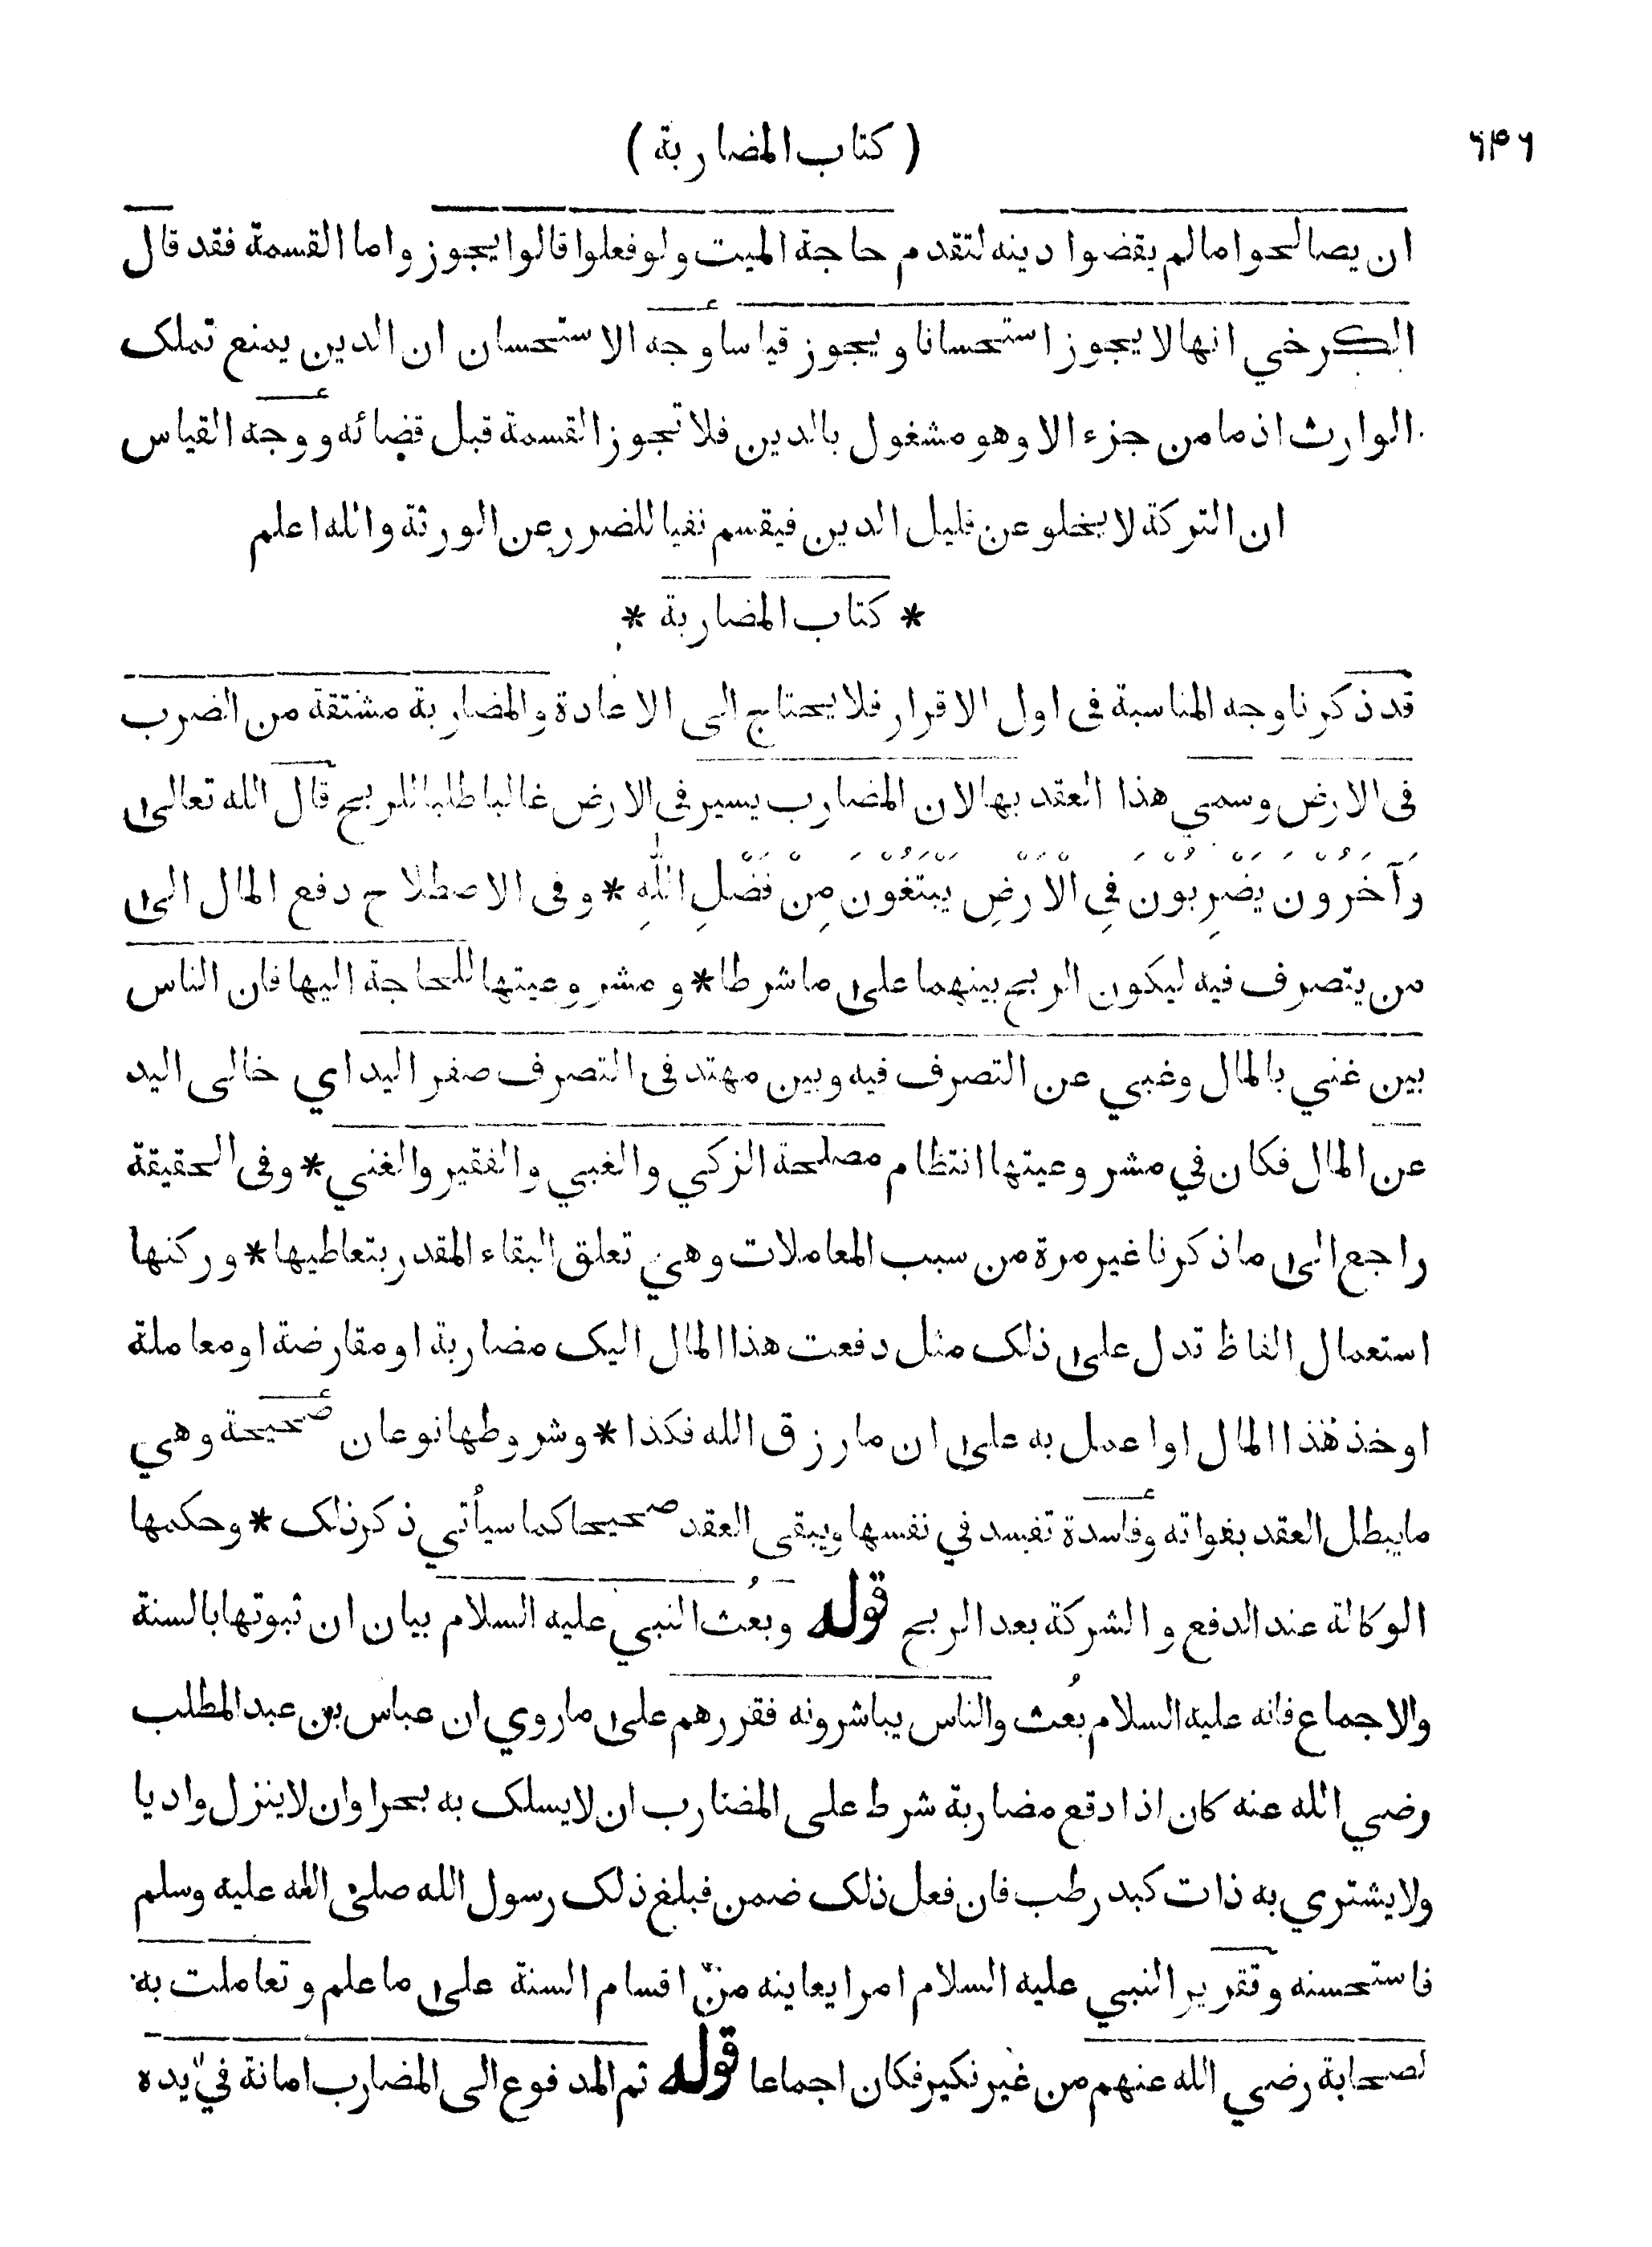 ۶۴۶ ( كتاب المضاربة )
ان يصالحوا مالم يقضوا دينه لتقدم حاجة الميت ولو فعلوا قالوا يجوز واما القسمة فقد قال
الكرخي انها لا يجوز استحسانا ويجوز قياسا وجه الاستحسان ان الدين يمنع تملك
الوارث اذ ما من جزء الا وهو مشغول بالدين فلا تجوز القسمة قبل قضائه ووجه القياس
ان التركة لا يخلو عن قليل الدين فيقسم نفيا للضرر عن الورثة والله اعلم
* كتاب المضاربة *
قد ذكرنا وجه المناسبة فى اول الاقرار فلا يحتاج الى الاعادة والمضاربة مشتقة من الضرب
فى الارض وسمي هذا العقد بها لان المضارب يسير فى الارض غالبا طلبا للربح قال الله تعالى
وَآخَرُوْنَ يَضْرِبُوْنَ فِي الْاَرْضِ يَبْتَغُوْنَ مِنْ فَضْلِ اللّٰهِ * وفى الاصطلاح دفع المال الى
من يتصرف فيه ليكون الربح بينهما على ما شرطا * ومشروعيتها للحاجة اليها فان الناس
بين غني بالمال وغبي عن التصرف فيه وبين مهتد فى التصرف صفر اليد اي خالى اليد
عن المال فكان في مشروعيتها انتظام مصلحة الزكي والغبي والفقير والغني * وفى الحقيقة
راجع الى ما ذكرنا غير مرة من سبب المعاملات وهي تعلق البقاء المقدر بتعاطيها * وركنها
استعمال الفاظ تدل على ذلك مثل دفعت هذا المال اليك مضاربة او مقارضة او معاملة
او خذ هذا المال او اعمل به على ان ما رزق الله فكذا * وشروطها نوعان صحيحة وهي
ما يبطل العقد بفواته وفاسدة تفسد في نفسها ويبقى العقد صحيحا كما سيأتي ذكر ذلك * وحكمها
الوكالة عند الدفع والشركة بعد الربح قوله وبُعث النبي عليه السلام بيان ان ثبوتها بالسنة
والاجماع فانه عليه السلام بُعث والناس يباشرونه فقررهم على ما روي ان عباس بن عبد المطلب
رضي الله عنه كان اذا دفع مضاربة شرط على المضارب ان لا يسلك به بحرا وان لا ينزل واديا
ولا يشتري به ذات كبد رطب فان فعل ذلك ضمن فبلغ ذلك رسول الله صلى الله عليه وسلم
فاستحسنه وتقرير النبي عليه السلام امرا يعاينه من اقسام السنة على ما علم وتعاملت به
لصحابة رضي الله عنهم من غير نكير فكان اجماعا قوله ثم المدفوع الى المضارب امانة في يده